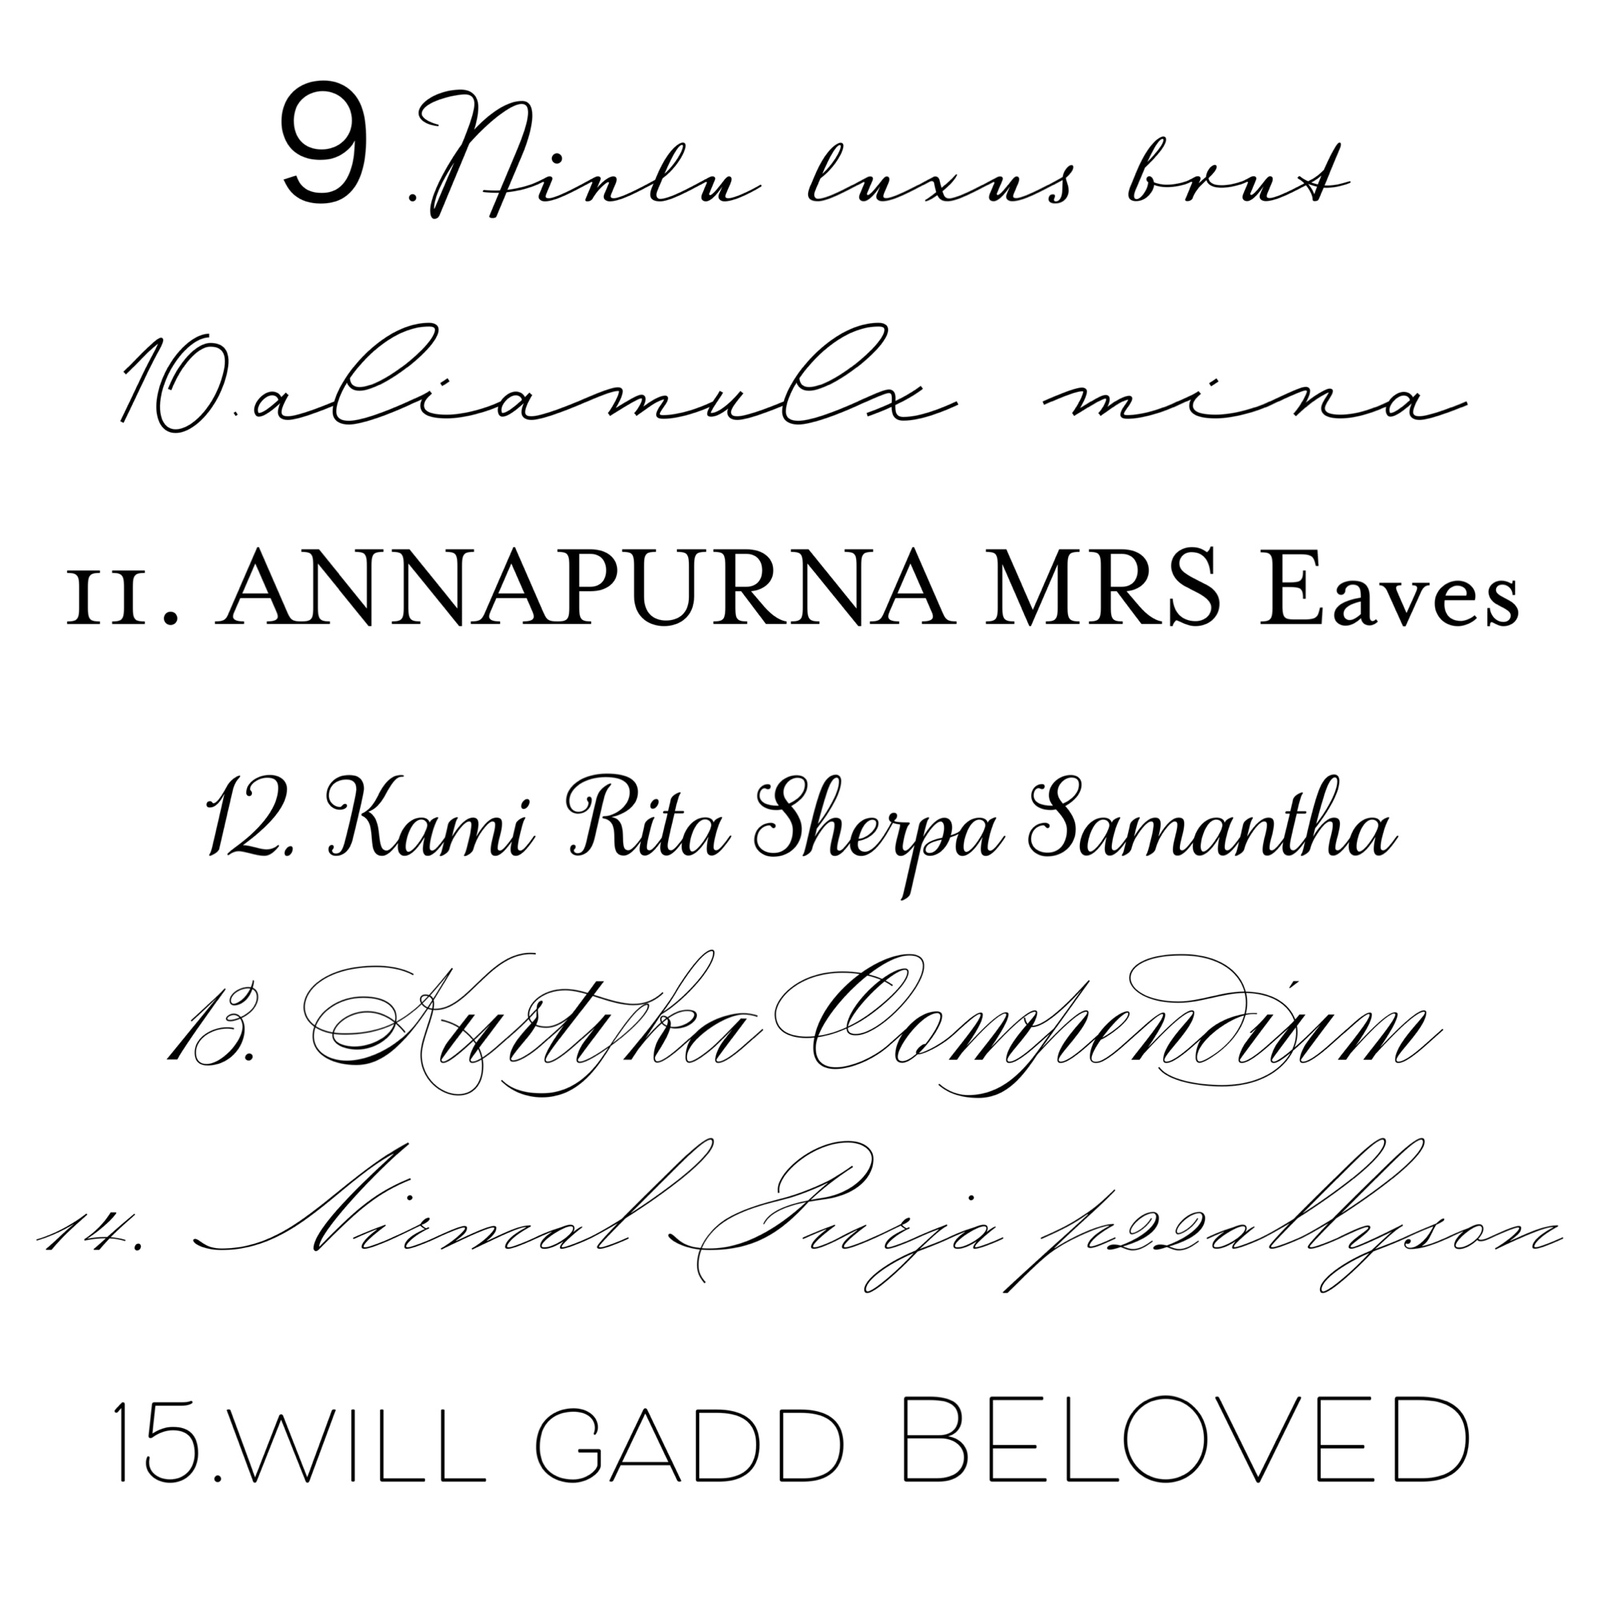 9 .Ninlu luxus brut
10.aliamulx mina
11. ANNAPURNA MRS Eaves
12. Kami Rita Sherpa Samantha
13. Kurtyka Compendium
14. Nirmal Purja p22allyson
15.WILL GADD BELOVED